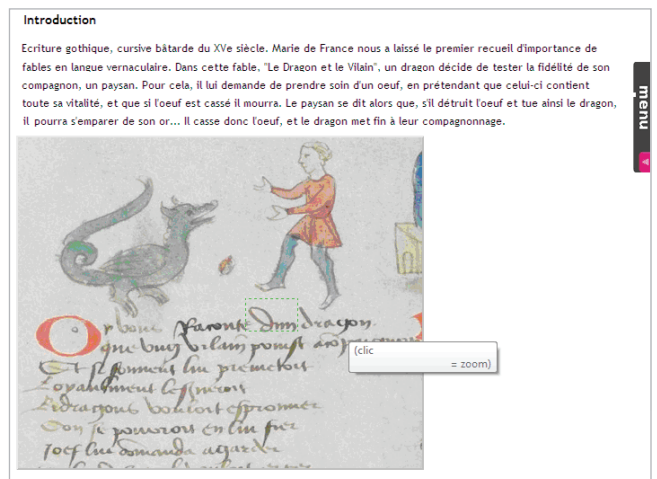 Introduction
Ecriture gothique, cursive bâtarde du XVe siècle. Marie de France nous a laissé le premier recueil d'importance de
fables en langue vernaculaire. Dans cette fable, "Le Dragon et le Vilain", un dragon décide de tester la fidélité de son
compagnon, un paysan. Pour cela, il lui demande de prendre soin d'un oeuf, en prétendant que celui-ci contient
toute sa vitalité, et que si l'oeuf est cassé il mourra. Le paysan se dit alors que, s'il détruit l'oeuf et tue ainsi le dragon,
il pourra s'emparer de son or... Il casse donc l'oeuf, et le dragon met fin à leur compagnonnage.
menu
Or vous Raconte dun dragon
que vng vilain
(clic
= zoom)
Et se lui prometoit
Loyaulment
Li dragons vouloit esprouuer
Son se pouuoroit en lui fier
1oef lui domanda a garder